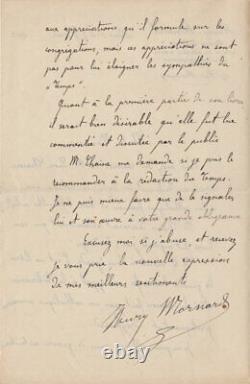 aux appréciations qu'il formule sur les
congrégations, mais ces appréciations ne sont
pas pour lui éloigner les sympathies du
"Temps".
Quant à la première partie de son livre
il serait bien désirable qu'elle fut lue
commentée et discutée par le public
M. Chaine me demande si je puis le
recommander à la rédaction du Temps.
Je ne puis mieux faire que de le signaler
lui et son œuvre à votre grande obligeance
Excusez moi si j'abuse et recevez
je vous prie la nouvelle expression
de mes meilleurs sentiments
Henry Mornard